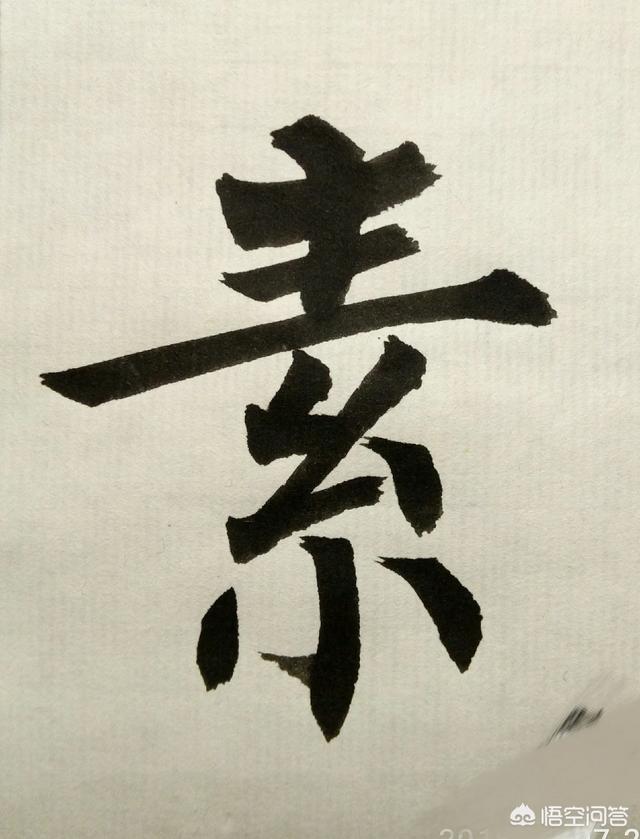 素
悟空问答